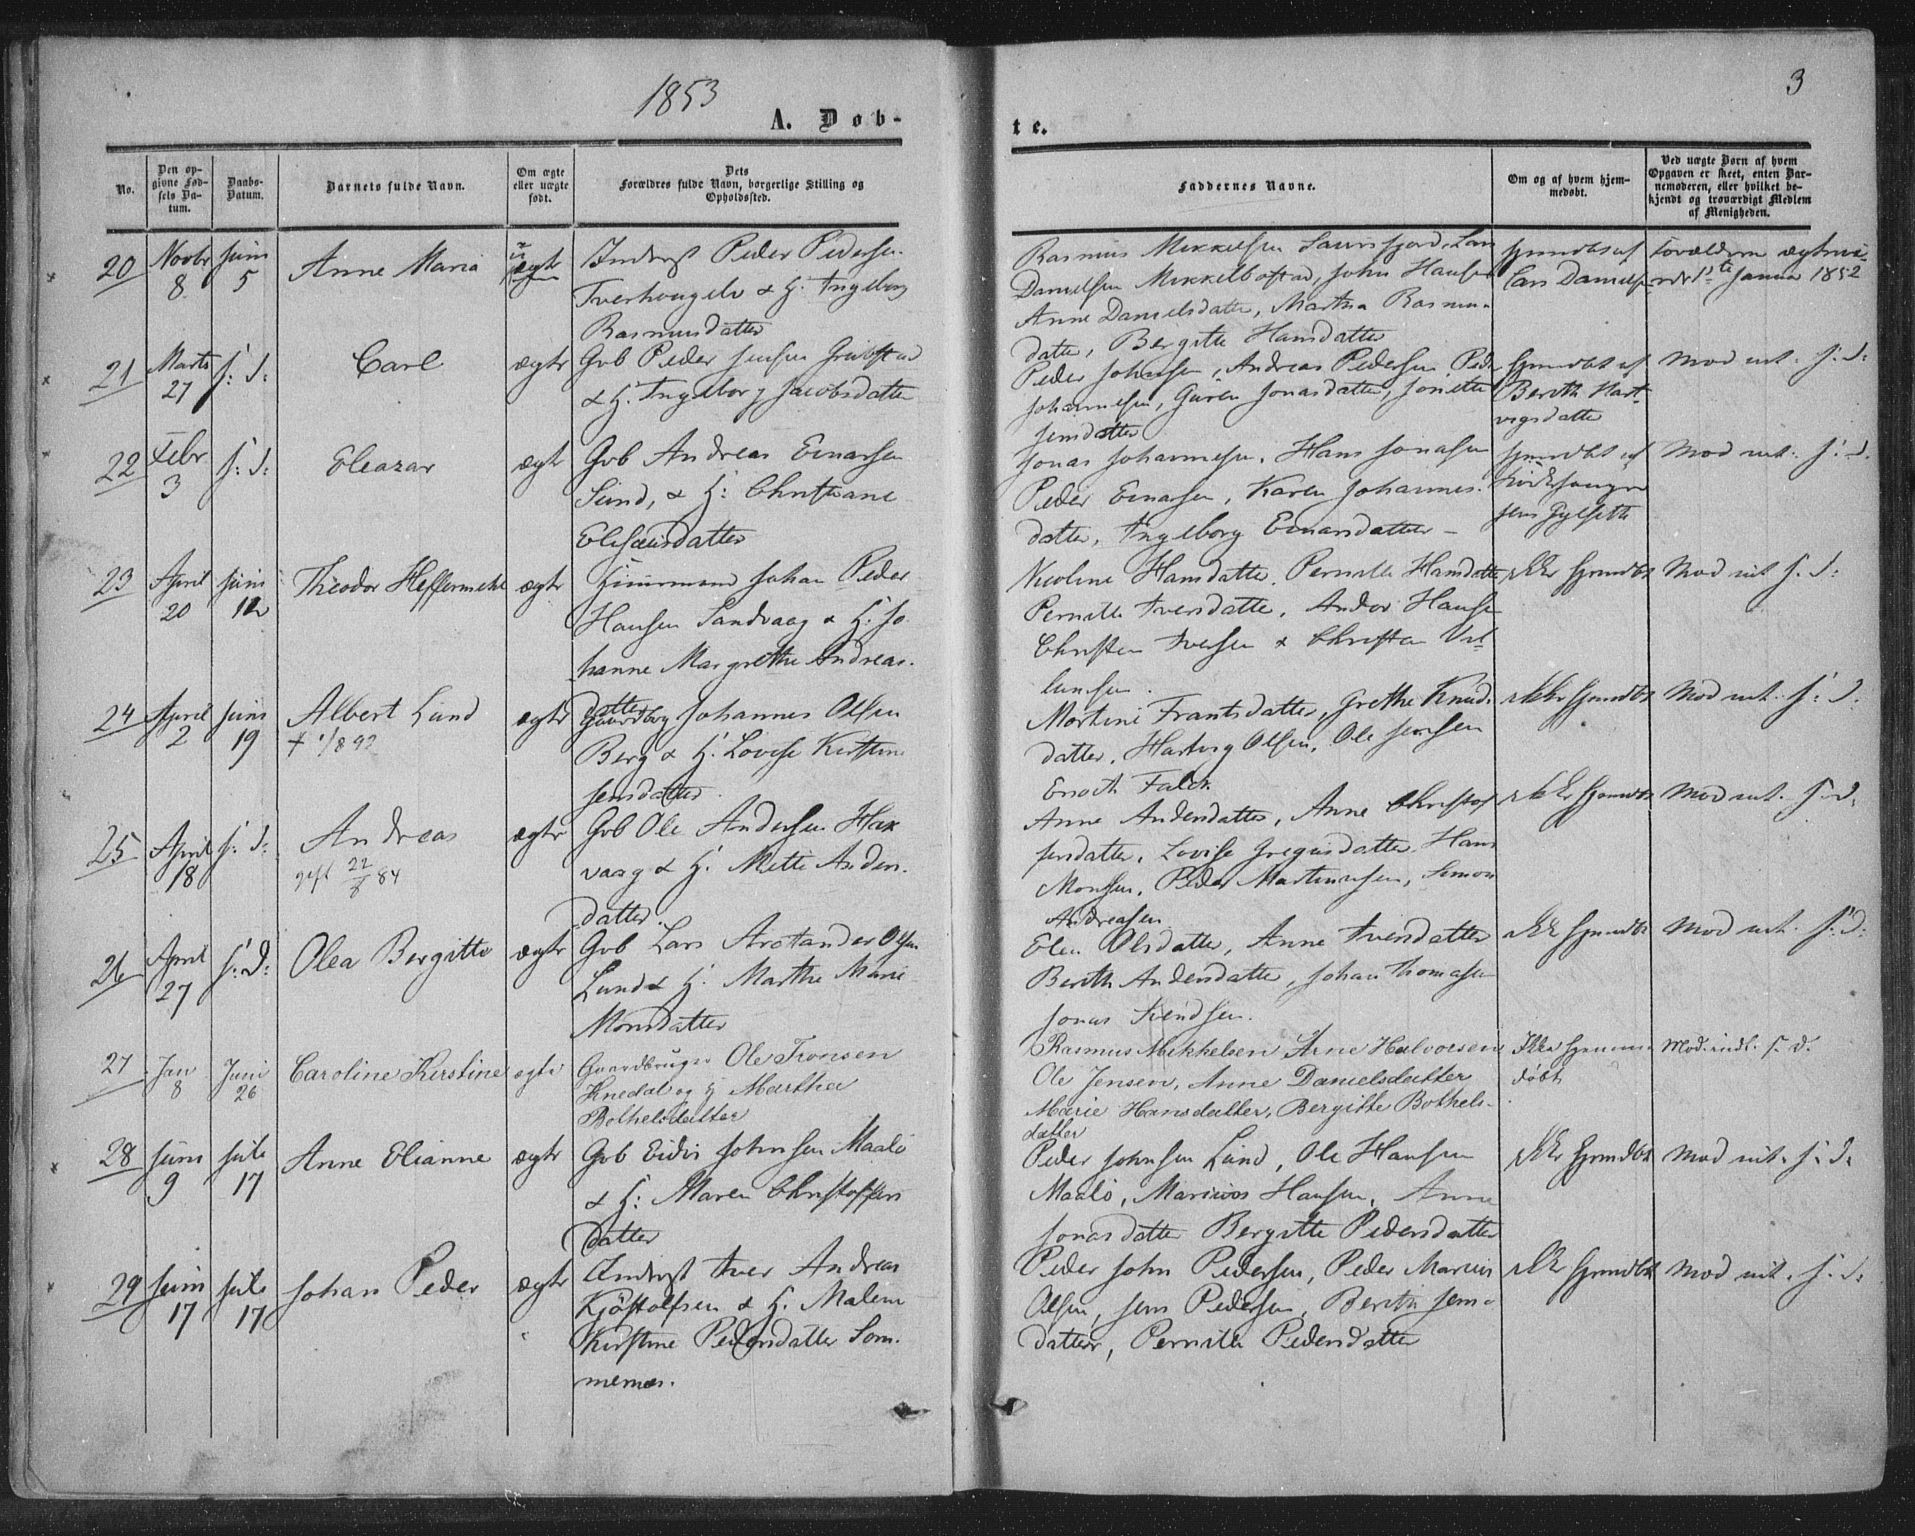 1853
3
A. Døb-
te.
No.
Den op-
givne Fød-
sels Da-
tum.
Daabs-
Datum.
Barnets fulde Navn.
Om ægte
eller uægte
født.
Dets
Forældres fulde Navn, borgerlige Stilling og
Opholdssted.
Faddernes Navne.
Om og af hvem hjem-
medøbt.
Ved uægte Børn af hvem
Opgaven er skeet, enten Bar-
nemoderen, eller hvilket be-
kjendt og troværdigt Medlem
af Menigheden.
20
Novbr
8
Juni
5
Anne Maria
ægte
Inderst Peder Pedersen
& H. Ingeborg
Rasmusdatter
Rasmus Mikkelsen Laursfjord, Lars
Danielsen Mikkelbostad, John Hansen
Anne Danielsdatter, Martha Rasmus-
datter, Bergitte Hansdatter
Hjemdbt af
Lars Danielsen
Forældrene
1ste Januar 1852
21
Marts
27
s: d:
Carl
ægte
Gvb Peder Jensen
& H. Ingeborg Jacobsdatter
Peder Johnsen, Andreas Pedersen, Peder
Johannesen, Guren Jonasdatter, Jonette
Jensdatter
Hjemdbt af
Berith Hart-
vigsdatter
Mod. int. s: d:
22
Febr
3
s: d:
Eleazar
ægte
Gvb Andreas Einarsen
Sund, & H: Christiane
Elisæusdatter
Jonas Johannesen, Hans Jonasen
Peder Einarsen, Karen Johannes-
datter, Ingeborg Einarsdatter
Hjemdbt af
Kirkesanger
Jens Gylseth
Mod int: s: d.
23
April
20
Juni
12
Theodor Heffermehl
ægte
Huusmand Johan Peder
Hansen Sandvaag & H. Jo-
hanne Margrethe Andreas-
datter
Nicoline Hansdatter, Pernille Hansdatter
Pernille Iversdatter, Andor Hansen
Christen Iversen & Christen
ikke hjemdbt
Mod int s. d:
24
April
2
Juni
19
Albert Lund
† 1/8 92
ægte
Gaardbrg Johannes Olsen
Berg & H. Lovise Kirstine
Jensdatter
Martine Frantsdatter, Grethe Knuds-
datter, Hartvig Olsen, Ole Jensen
Enoch Falch
ikke hjemdbt
Mod int. s: d.
25
April
18
s: d:
Andreas
gift 22/8 84
ægte
Gvb Ole Andersen Hax-
vaag & H. Mette Anders-
datter.
Anne Andersdatter, Anne Christof-
fersdatter, Lovise Gregusdatter, Hans
Monsen, Peder Martinusen, Simon
Andreasen
ikke hjemdbt
Mod int. s. d.
26
April
27
s: d:
Olea Bergitte
ægte
Gvb Lars Arctander Olsen
Lund & H. Marthe Marie
Monsdatter
Elen Olsdatter, Anne Iversdatter
Berith Andersdatter, Johan Thomasen
Jonas Svendsen.
ikke hjemdbt
Mod int. s: d:
27
Jan
8
Juni
26
Caroline Kirstine
ægte
Gaardbruger Ole Tronsen
Knedal og H Martha
Bothelsdatter
Rasmus Mikkelsen Arne Halvorsen
Ole Jensen, Anne Danielsdatter
Marie Hansdatter, Bergitte Bothels-
datter
Ikke hjemme-
døbt
Mod. indt. s. d.
28
Juni
9
Juli
17
Anne Elianne
ægte
Gvb Johnsen Maalø
& H: Maren Christoffers
datter
Peder Johnsen Lund, Ole Hansen
Maalø, Marius Hansen, Anne
Jonasdatter Bergitte Pedersdatter
ikke hjemdbt
Mod int. s. d.
29
Juni
17
Juli
17
Johan Peder
ægte
Inderst Iver Andreas
Kjöstolfsen & H. Malene
Kirstine Pedersdatter Som-
mernæs.
Peder John Pedersen, Peder Marius
Olsen, Jens Pedersen, Berith Jens-
datter, Pernille Pedersdatter
ikke hjemdbt
Mod int. s. d.